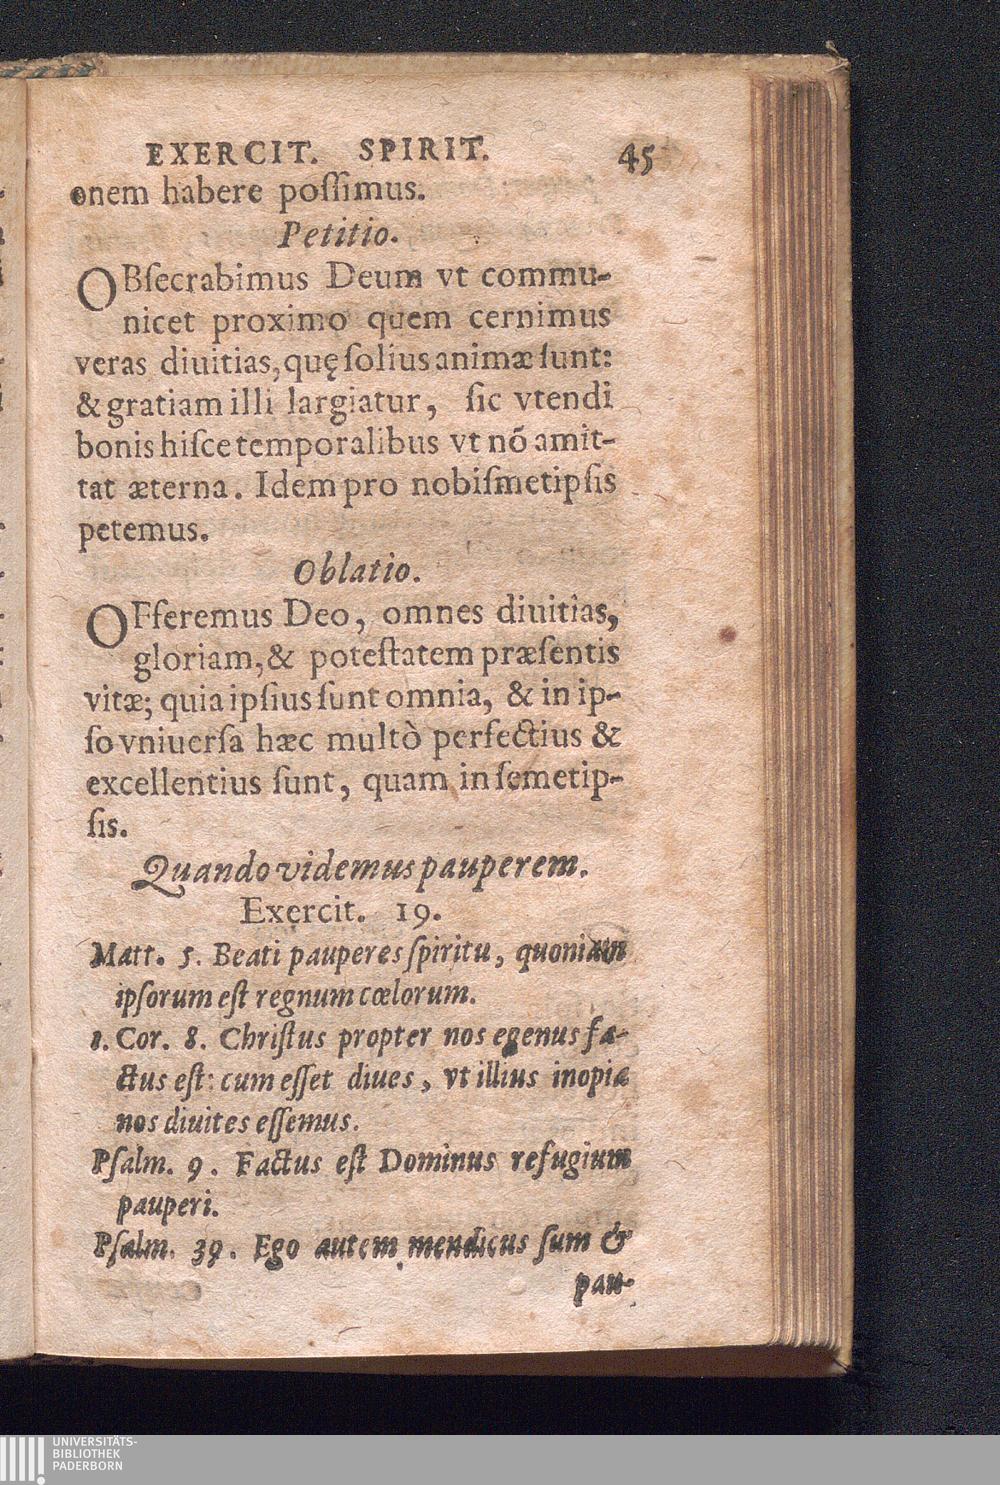 EXERCIT. SPIRIT. 45
onem habere poſſimus.
Petitio.
OBſecrabimus Deum vt commu-
nicet proximo quem cernimus
veras diuitias, quę ſolius animæ ſunt:
& gratiam illi largiatur, ſic vtendi
bonis hiſce temporalibus vt nõ amit-
tat æterna. Idem pro nobiſmetipſis
petemus.
Oblatio.
OFferemus Deo, omnes diuitias,
gloriam, & poteſtatem præſentis
vitæ; quia ipſius ſunt omnia, & in ip-
ſo vniuerſa hæc multò perfectius &
excellentius ſunt, quam in ſemetip-
ſis.
Quando videmus pauperem.
Exercit. 19.
Matt. 5. Beati pauperes ſpiritu, quoniam
ipſorum eſt regnum cœlorum.
1. Cor. 8. Chriſtus propter nos egenus fa-
ctus eſt: cum eſſet diues, vt illius inopia
nos diuites eſſemus.
Pſalm. 9. Factus eſt Dominus refugium
pauperi.
Pſalm. 39. Ego autem mendicus ſum &
pau-
UNIVERSITÄTS-
BIBLIOTHEK
PADERBORN